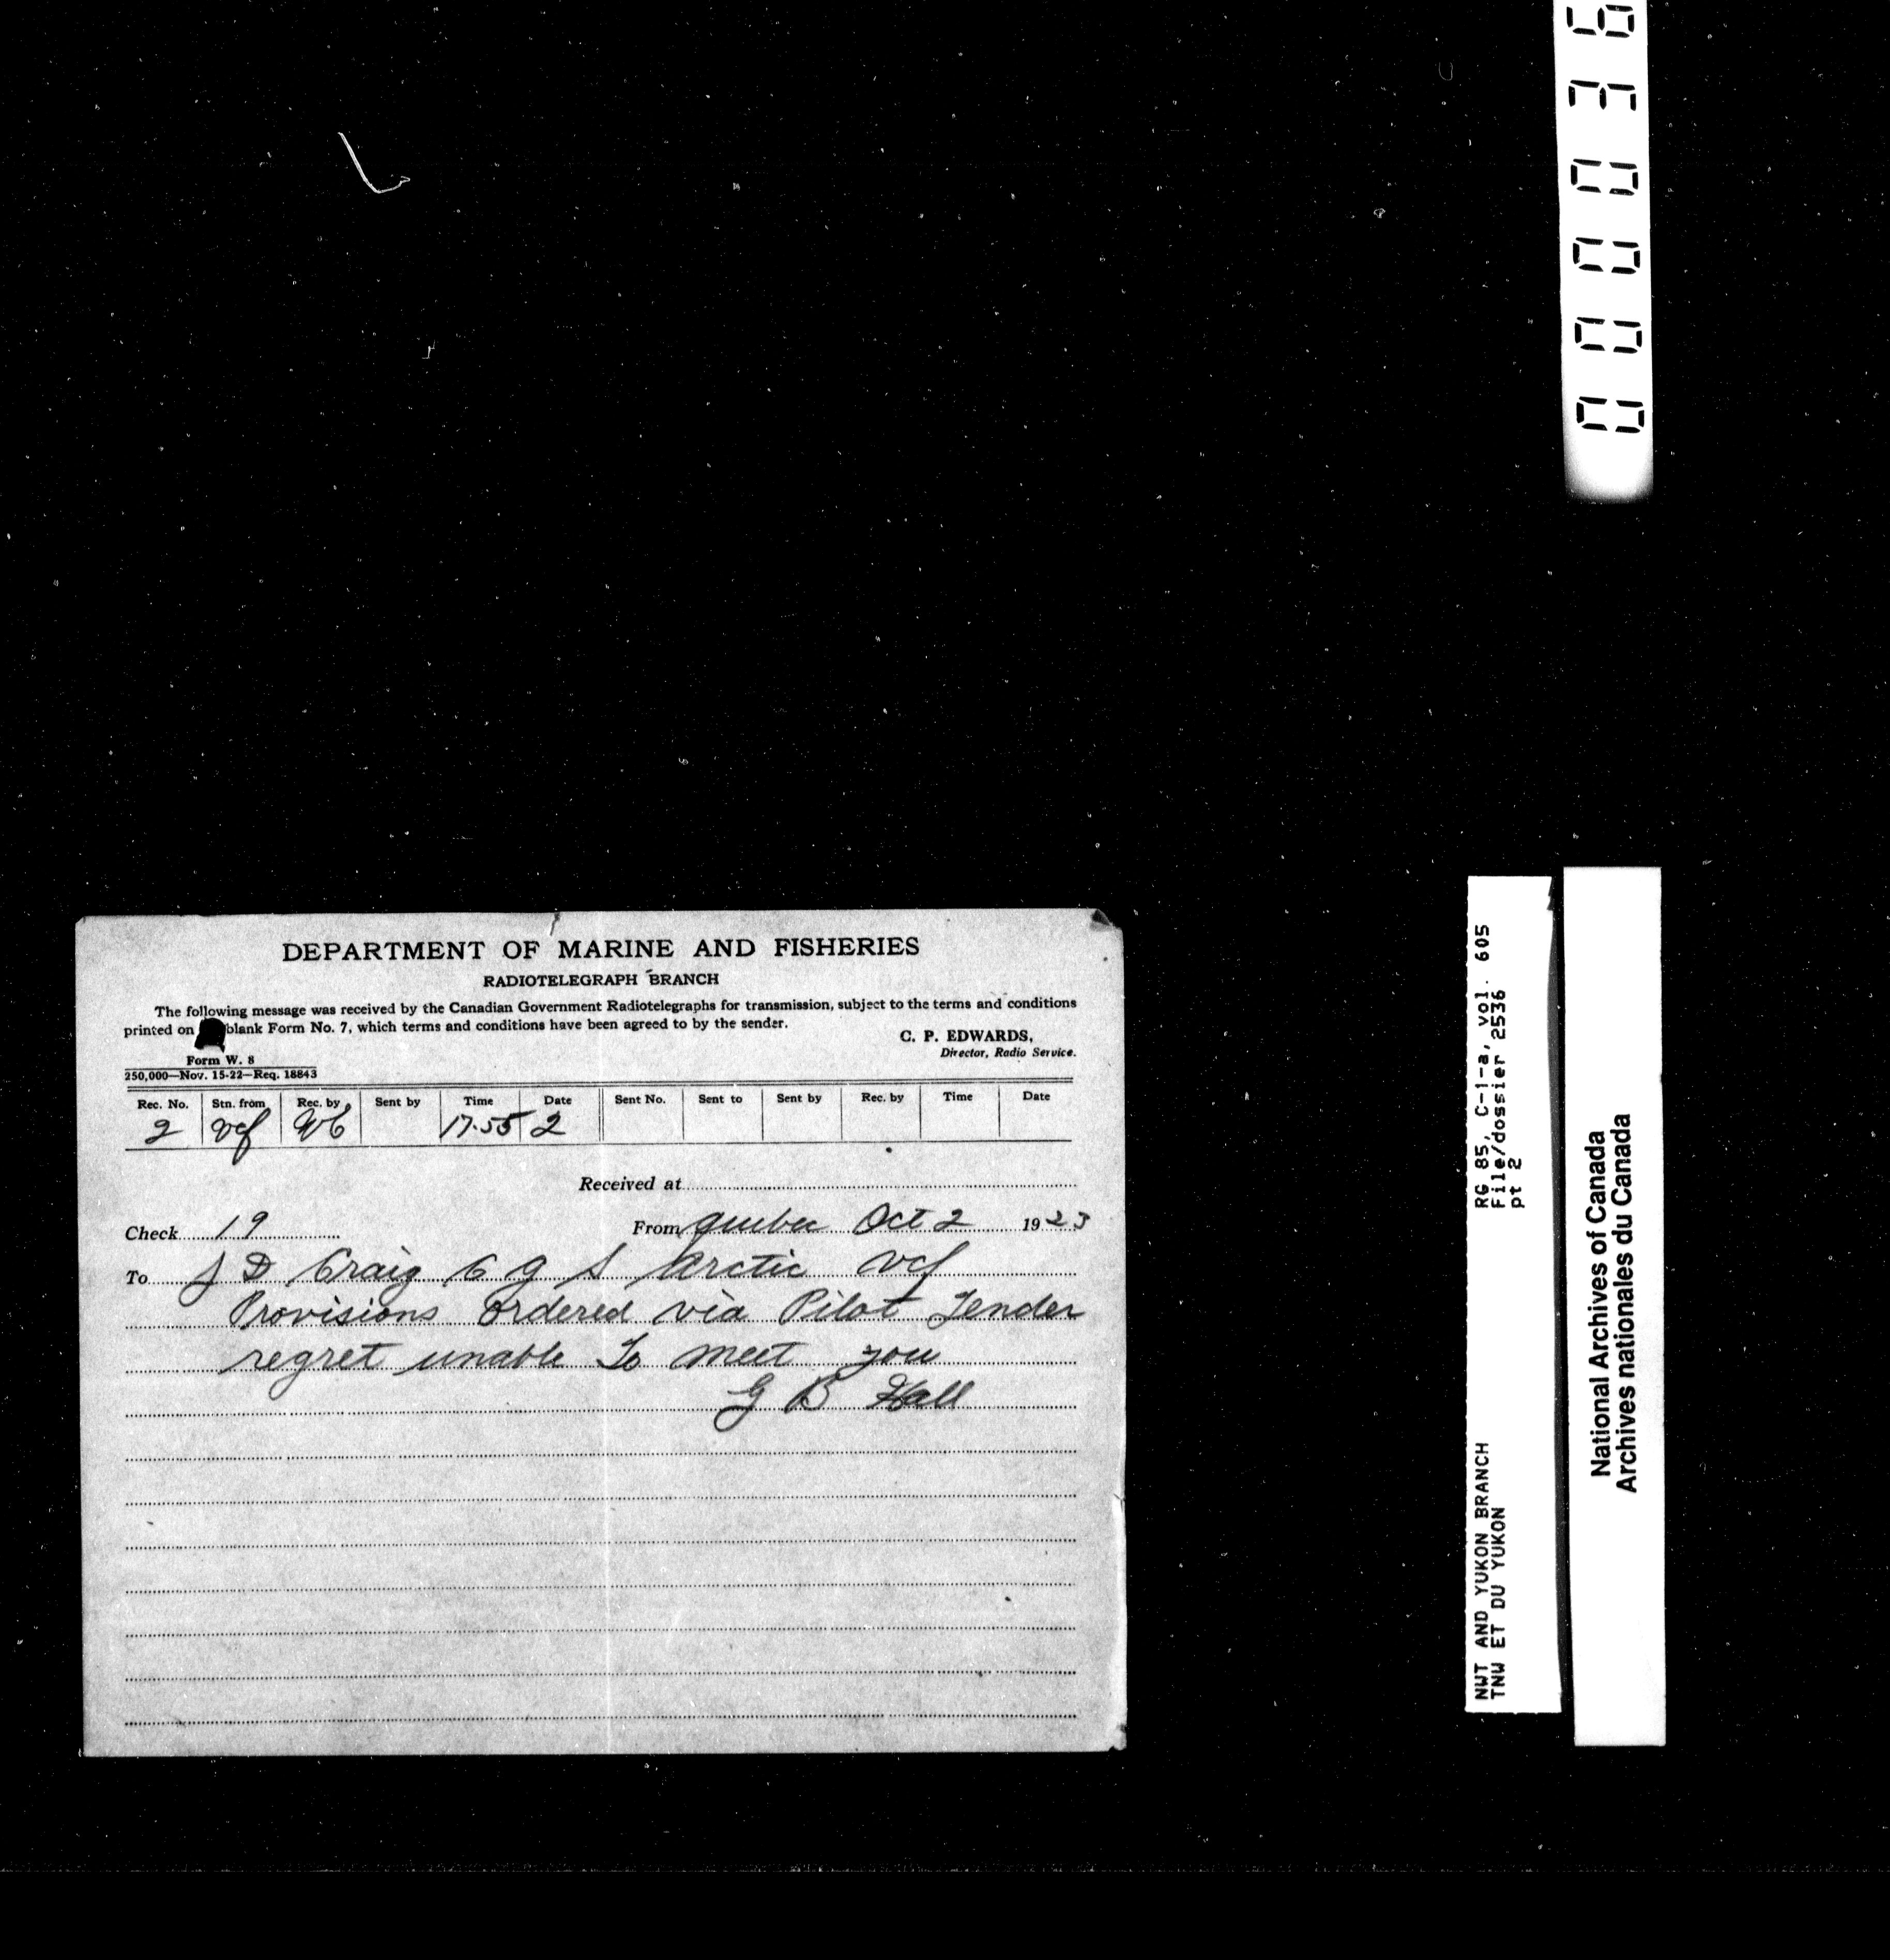 DEPARTMENT OF MARINE AND FISHERIES
RADIOTELEGRAPH BRANCH
The following message was received by the Canadian Government Radiotelegraphs for transmission, subject to the terms and conditions
printed on blank Form No. 7, which terms and conditions have been agreed to by the sender.
C. P. EDWARDS,
Director, Radio Service.
Form W. 8
250,000—Nov. 15-22—Req. 18843
Rec. No. Stn. from Rec. by Sent by Time Date Sent No. Sent to Sent by Rec. by Time Date
2 vcf 17.55 2
Received at
Check 19 From Quebec Oct 2 1923
To J D Craig C G S Arctic vcf
Provisions ordered via Pilot Tender
regret unable to meet you
G B Hall
000036
RG 85, C-1-a, vol. 605
File/dossier 2536
pt 2
NWT AND YUKON BRANCH
TNW ET DU YUKON
National Archives of Canada
Archives nationales du Canada